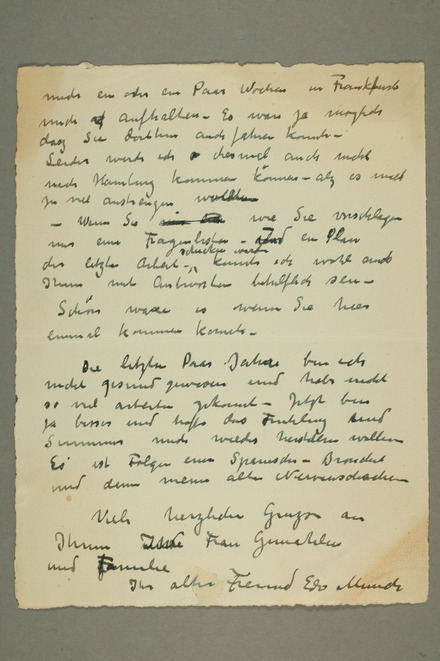 mich ein oder ein Paar Wochen in Frankfurt
mich aufhalten – Es war ja möglich
dasz Sie dorthin auch fahren konnte –
Leider werde ich diesmal auch nicht
nach Hamburg kommen können – als es mich
zu viel anstrengen wollte
– Wenn Sie wie Sie vorschlagen
mir eine Fragenlisten – und ein Plan
der letzte Arbeit – schicken würde könnte ich wohl auch
Ihnen mit Antworten behülflich sein –
Schön wäre es wenn Sie hier
einmal kommen konnte –
Die letzten Paar Jahre bin ich
nicht gesund gewesen und habe nicht
so viel arbeiten gekonnt – Jetzt bin
ja besser und hoffe das Frühling und
Sommer mich wieder herstellen wollen
Es ist Folgen einer Spanischen – Bronchit
und dann meine alte Nervenschwäche
Viele herzliche Grüsze an
Ihnen Frau Gemahlin
und Familie
Ihr alter Freund Edv Munch